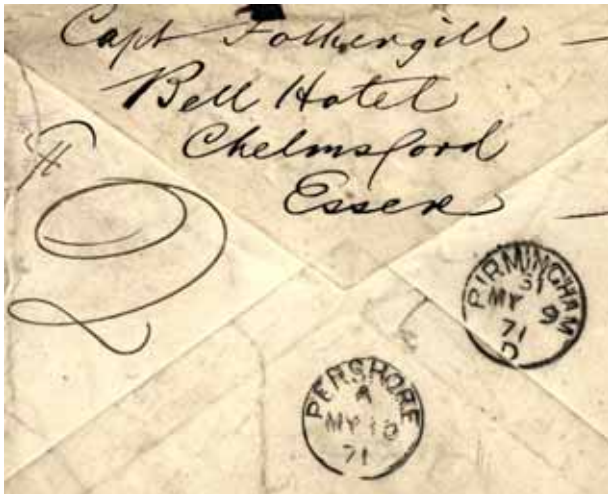 Capt Fothergill
Bell Hotel
Chelmsford
Essex
BIRMINGHAM
51
MY 9
71
D
PERSHORE
A
MY 10
71